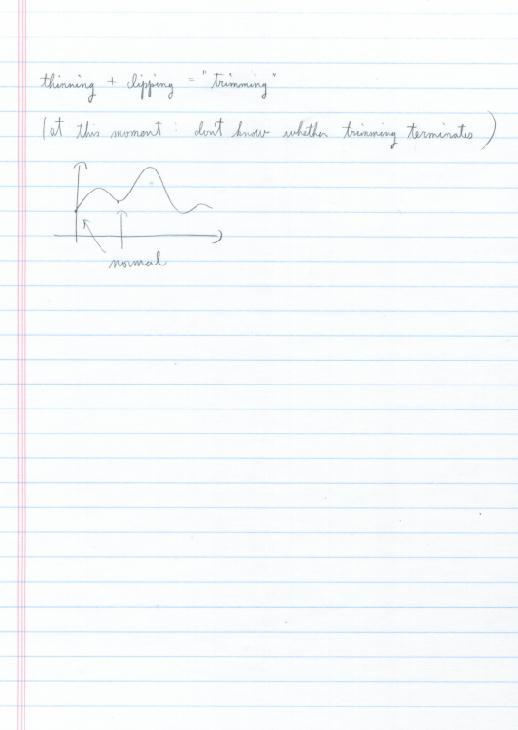 thinning + clipping = "trimming"
(at this moment : dont know whether trimming terminates)
normal